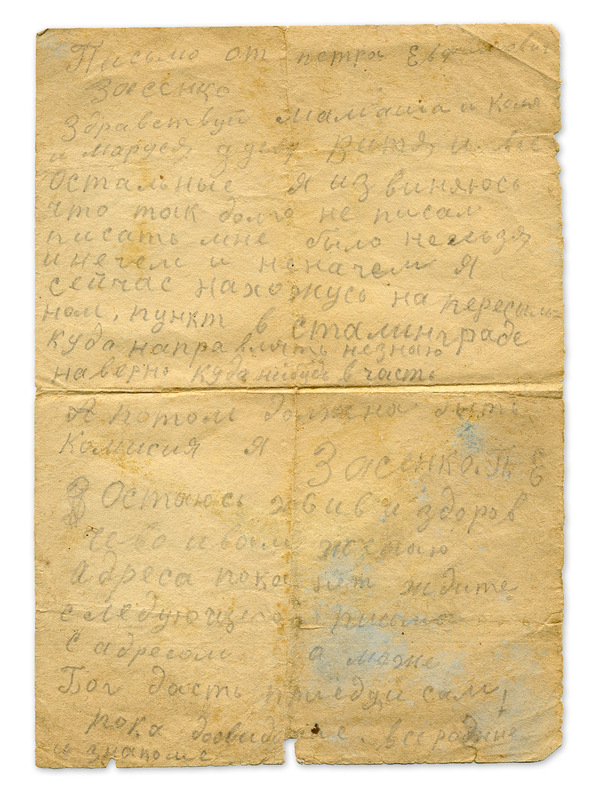 Письмо от петра
Засенко
Здравствуй мамаша и Коля
и маруся дуся Витя и все
остальные я извиняюсь
что так долго не писал
писать мне было нельзя
и нечем и неначем я
сейчас нахожусь на пересыль-
ном, пункт в сталинграде
куда направлять незнаю
наверно куда нибудь в часть
А потом должна быть
комисия я
Засенко
Остаюсь жив и здоров
чево и вам желаю
адреса пока нет ждите
следующего письма
с адресом а може
Бог дасть приеду сам,
пока досвидание. все родние
и знакоме